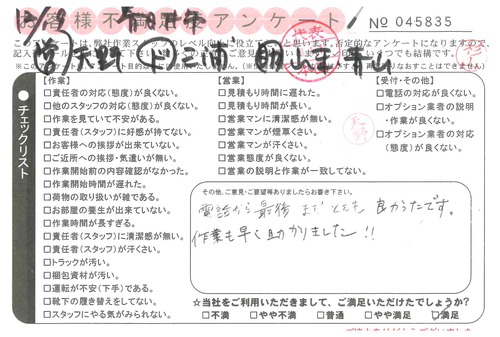 お客様不満足アンケート
No 045835
【作業】
□責任者の対応(態度)が良くない。
□他のスタッフの対応(態度)が良くない。
□作業を見ていて不安がある。
□責任者(スタッフ)に好感が持てない。
□お客様への挨拶が出来ていない。
□ご近所への挨拶・気遣いが無い。
□作業開始前の内容確認がなかった。
□作業開始時間が遅れた。
□荷物の取り扱いが雑である。
□お部屋の養生が出来ていない。
□作業時間が長すぎる。
□責任者(スタッフ)に清潔感が無い。
□責任者(スタッフ)が汗くさい。
□トラックが汚い。
□梱包資材が汚い。
□運転が不安(下手)である。
□靴下の履き替えをしてない。
□スタッフにやる気がみられない。
【営業】
□見積もり時間に遅れた。
□見積もり時間が長い。
□営業マンに清潔感が無い。
□営業マンが煙草くさい。
□営業マンが汗くさい。
□営業態度が良くない。
□営業の説明と作業が一致してない。
【受付・その他】
□電話の対応が良くない。
□オプション業者の説明
・作業が良くない。
□オプション業者の対応
(態度)が良くない。
チェックリスト
その他、ご意見・ご要望等ありましたらお書き下さい。
電話から最後までとても良かったです。
作業も早く助かりました!!
☆当社をご利用いただきまして、ご満足いただけたでしょうか?
□不満 □やや不満 □普通 □やや満足 ☑満足